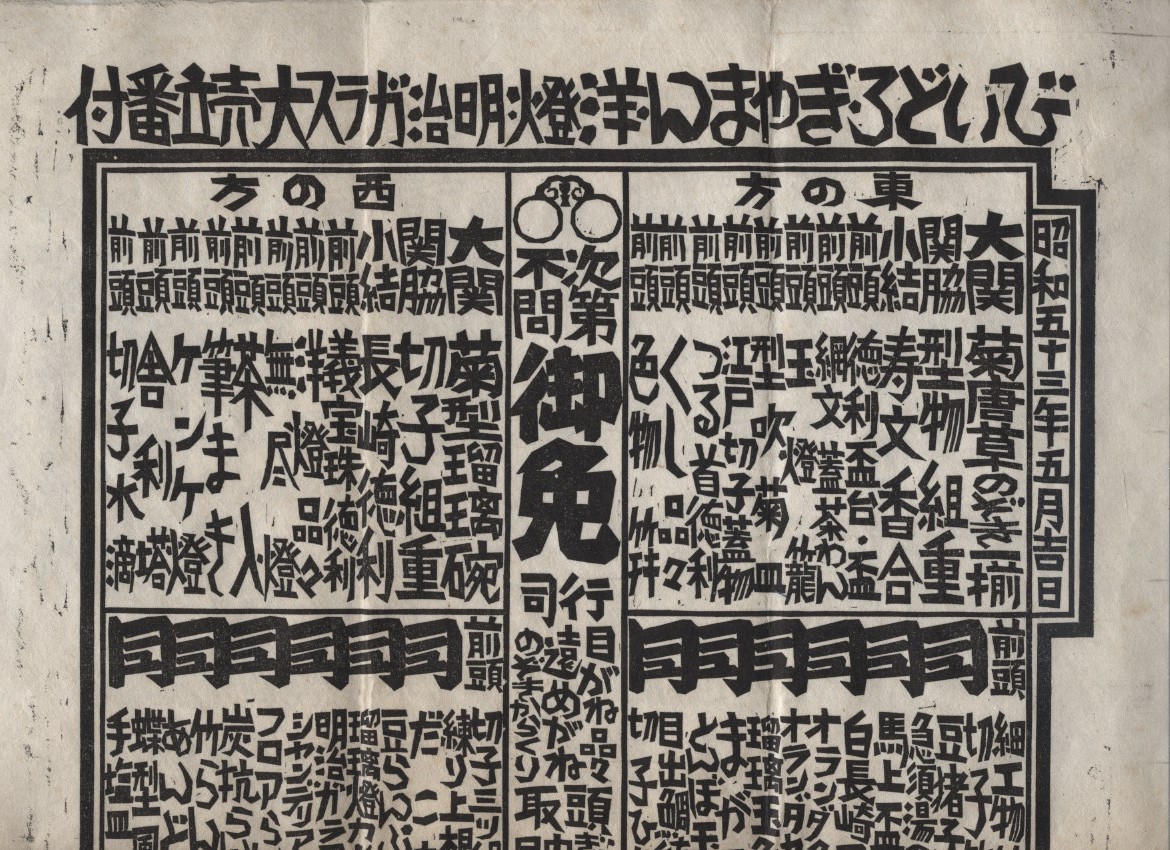 びいどろぎやまん洋燈明治ガラス大売立番付
昭和五十三年五月吉日
東の方
大関 菊唐草のぞき一揃
関脇 型物組重
小結 寿文香合
前頭 徳利盃台・盃
前頭 網文蓋茶わん
前頭 玉燈籠
前頭 型吹菊皿
前頭 江戸切子蓋物
前頭 つる首徳利
前頭 くし品々
前頭 色物笄
次第
不問
御免
行司
目がね品々
遠めがね
のぞきからくり
頭
取
西の方
大関 菊型瑠璃碗
関脇 切子組重
小結 長崎徳利
前頭 義宝珠徳利
前頭 洋燈品々
前頭 無尽燈
前頭 茶入
前頭 筆まき
前頭 ケンケ燈
前頭 舎利塔
前頭 切子水滴
前頭 同 同 同 同 同 同
細工物
切子
豆猪子
急須湯
馬上盃
白長崎
オランダ
オランダ
瑠璃玉
まが
とんぼ玉
目出鯛
切子ひ
前頭 同 同 同 同 同 同
切子ミッ
練り上
だこ
豆らんぷ
瑠璃燈カ
明治ガラ
シャンデリア
フロアら
炭坑ら
竹らん
あんど
蝶型風
手塩皿